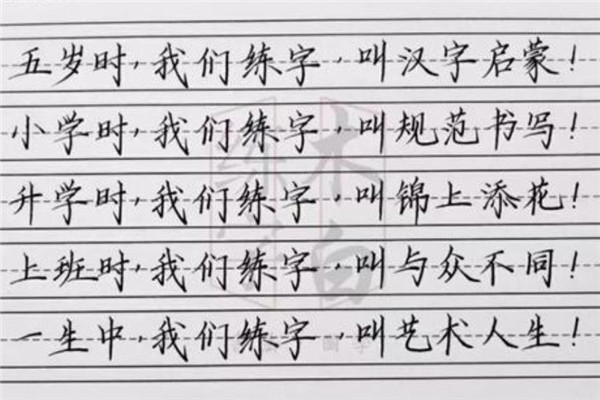 五岁时,我们练字,叫汉字启蒙!
小学时,我们练字,叫规范书写!
升学时,我们练字,叫锦上添花!
上班时,我们练字,叫与众不同!
一生中,我们练字,叫艺术人生!
木白
练字